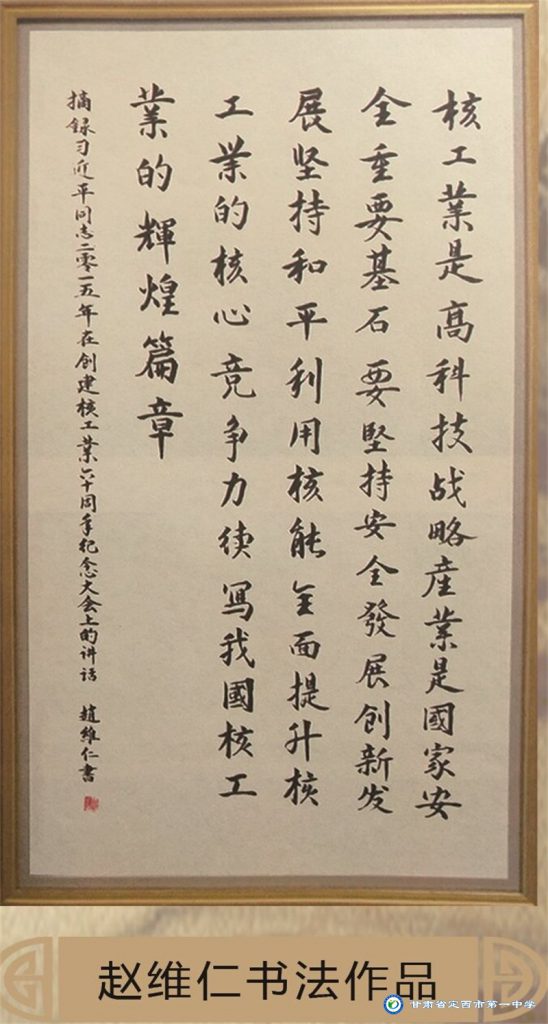 核工业是高科技战略産業是國家安
全重要基石要堅持安全發展创新发
展坚持和平利用核能全面提升核
工業的核心竞争力续写我國核工
業的輝煌篇章
摘録习近平同志二零一五年在创建核工業六十周年纪念大会上的讲话 趙維仁書
赵维仁书法作品
甘肃省定西市第一中学